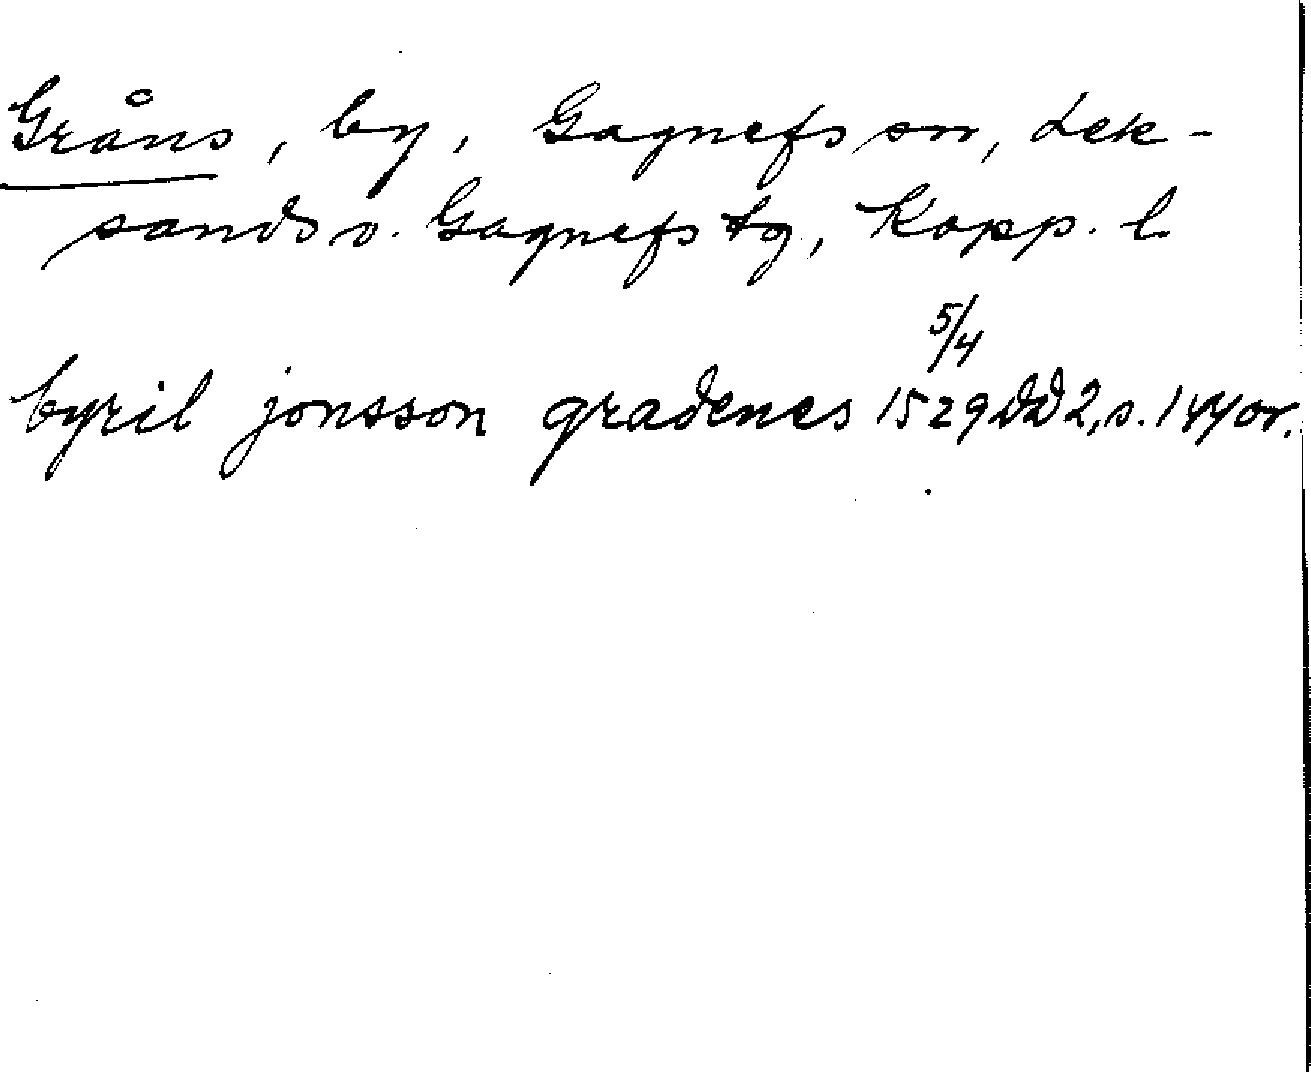 Gråns, by, Gagnefs sn, Lek-
sands o. Gagnefs tg, Kopp. l.
5/4
byril jonsson gradenes 1529 DD 2, s. 144 or.